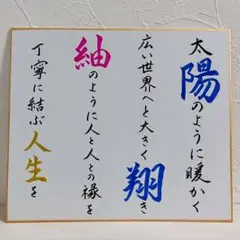 太陽のように暖かく
広い世界へと大きく翔き
紬のように人と人との縁を
丁寧に結ぶ人生を